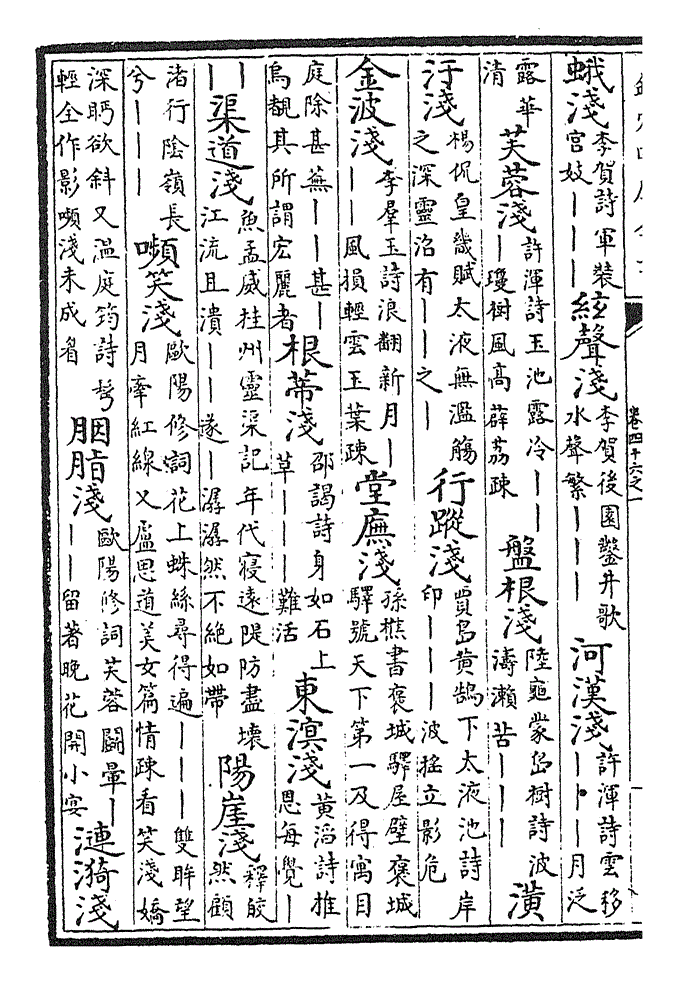 卷四十六之一
蛾淺 李賀詩軍裝宮妓｜｜｜ 絃聲淺 李賀後園鑿井歌水聲繁｜｜｜ 河漢淺 許渾詩雲移｜｜｜月泛
露華清 芙蓉淺 許渾詩玉池露冷｜｜｜瓊樹風高薜荔疎 盤根淺 陸龜蒙島樹詩波濤瀨苦｜｜｜ 潢
汙淺 楊侃皇畿賦太液無濫觴之深靈沼有｜｜之｜ 行蹤淺 賈島黃鵠下太液池詩岸印｜｜｜波搖立影危
金波淺 李羣玉詩浪翻新月｜｜｜風損輕雲玉葉疎 堂廡淺 孫樵書褒城驛屋壁褒城驛號天下第一及得寓目
庭除甚蕪｜｜甚｜烏覩其所謂宏麗者 根蔕淺 邵謁詩身如石上草｜｜｜難活 東溟淺 黃滔詩推恩每覺｜
｜｜ 渠道淺 魚孟威桂州靈渠記年代寖遠隄防盡壞江流且潰｜｜遂｜潺潺然不絕如帶 陽崖淺 釋皎然顧
渚行陰嶺長兮｜｜｜ 嚬笑淺 歐陽修詞花上蛛絲尋得遍｜｜｜雙眸望月牽紅線又盧思道美女篇情疎看笑淺嬌
深眄欲斜又溫庭筠詩髩輕全作影嚬淺未成眉 胭脂淺 歐陽修詞芙蓉鬭暈｜｜｜留著晚花開小宴 漣漪淺